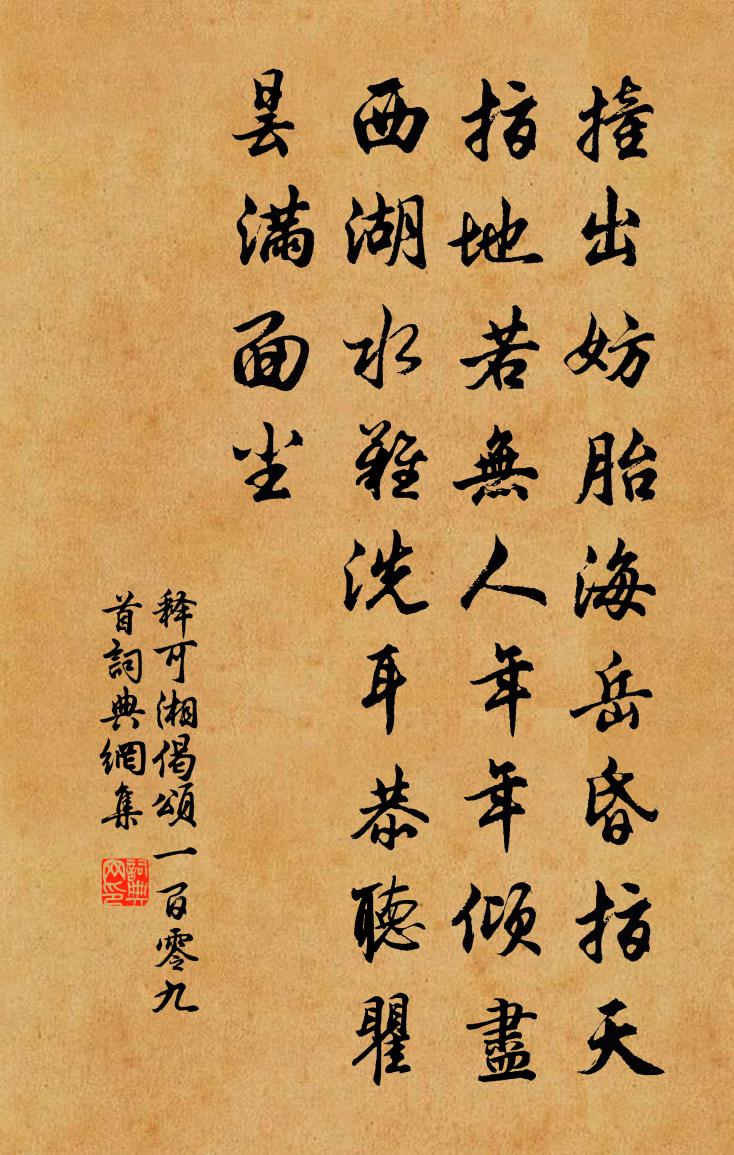 撞出妨胎海岳昏指天
指地若無人年年傾盡
西湖水難洗耳恭聽瞿
曇满面尘
释可湘偈頌一百零九
首詞典網集
詞典网印